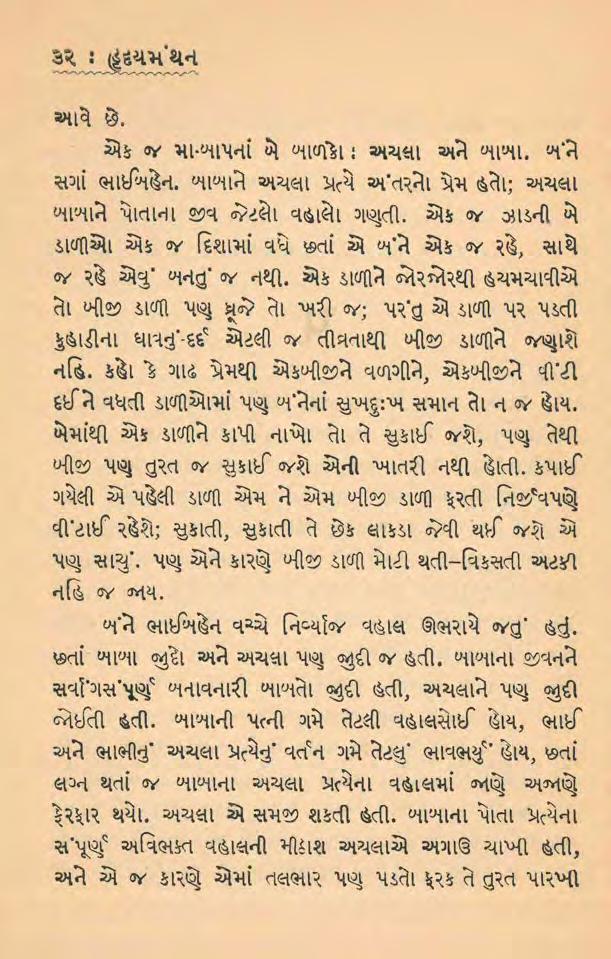 ૩૨ : હૃદયમંથન
આવે છે.
એક જ મા-બાપનાં બે બાળકો : અચલા અને બાબા. બંને
સગાં ભાઈબહેન. બાબાને અચલા પ્રત્યે અંતરનો પ્રેમ હતો; અચલા
બાબાને પોતાના જીવ જેટલો વહાલો ગણતી. એક જ ઝાડની બે
ડાળીઓ એક જ દિશામાં વધે છતાં એ બંને એક જ રહે, સાથે
જ રહે એવું બનતું જ નથી. એક ડાળીને જોરજોરથી હચમચાવીએ
તો બીજી ડાળી પણ ધ્રૂજે તો ખરી જ; પરંતુ એ ડાળી પર પડતી
કુહાડીના ઘાવનું-દર્દ એટલી જ તીવ્રતાથી બીજી ડાળીને જણાશે
નહિ. કહો કે ગાઢ પ્રેમથી એકબીજીને વળગીને, એકબીજીને વીંટી
દઈને વધતી ડાળીઓમાં પણ બંનેનાં સુખદુઃખ સમાન તો ન જ હોય.
બેમાંથી એક ડાળીને કાપી નાખો તો તે સુકાઈ જશે, પણ તેથી
બીજી પણ તુરત જ સુકાઈ જશે એની ખાતરી નથી હોતી. કપાઈ
ગયેલી એ પહેલી ડાળી એમ ને એમ બીજી ડાળી ફરતી નિર્જીવપણે
વીંટાઈ રહેશે; સુકાતી, સુકાતી તે છેક લાકડા જેવી થઈ જશે એ
પણ સાચું. પણ એને કારણે બીજી ડાળી મોટી થતી–વિકસતી અટકી
નહિ જ જાય.
બંને ભાઈબહેન વચ્ચે નિર્વ્યાજ વહાલ ઊભરાયે જતું હતું.
છતાં બાબા જુદો અને અચલા પણ જુદી જ હતી. બાબાના જીવનને
સર્વાંગસંપૂર્ણ બનાવનારી બાબતો જુદી હતી, અચલાને પણ જુદી
જોઈતી હતી. બાબાની પત્ની ગમે તેટલી વહાલસોઈ હોય, ભાઈ
અને ભાભીનું અચલા પ્રત્યેનું વર્તન ગમે તેટલું ભાવભર્યું હોય, છતાં
લગ્ન થતાં જ બાબાના અચલા પ્રત્યેના વહાલમાં જાણે અજાણે
ફેરફાર થયો. અચલા એ સમજી શકતી હતી. બાબાના પોતા પ્રત્યેના
સંપૂર્ણ અવિભક્ત વહાલની મીઠાશ અચલાએ અગાઉ ચાખી હતી,
અને એ જ કારણે એમાં તલભાર પણ પડતો ફરક તે તુરત પારખી